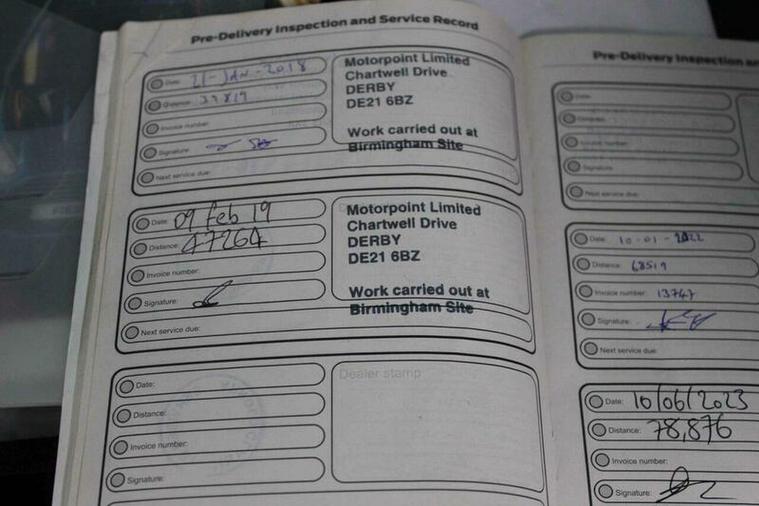 Pre-Delivery Inspection and Service Record
Date: 21-JAN-2018
Distance: 39819
Invoice number:
Signature:
Next service due:
Motorpoint Limited
Chartwell Drive
DERBY
DE21 6BZ
Work carried out at
Birmingham Site
Date: 09 Feb 19
Distance: 47264
Invoice number:
Signature:
Next service due:
Motorpoint Limited
Chartwell Drive
DERBY
DE21 6BZ
Work carried out at
Birmingham Site
Date:
Distance:
Invoice number:
Signature:
Dealer stamp
Pre-Delivery Inspection an
Date:
Distance:
Invoice number:
Signature:
Next service due:
Date: 10-01-2022
Distance: 68519
Invoice number: 13747
Signature:
Next service due:
Date: 10/06/2023
Distance: 78,876
Invoice number:
Signature: